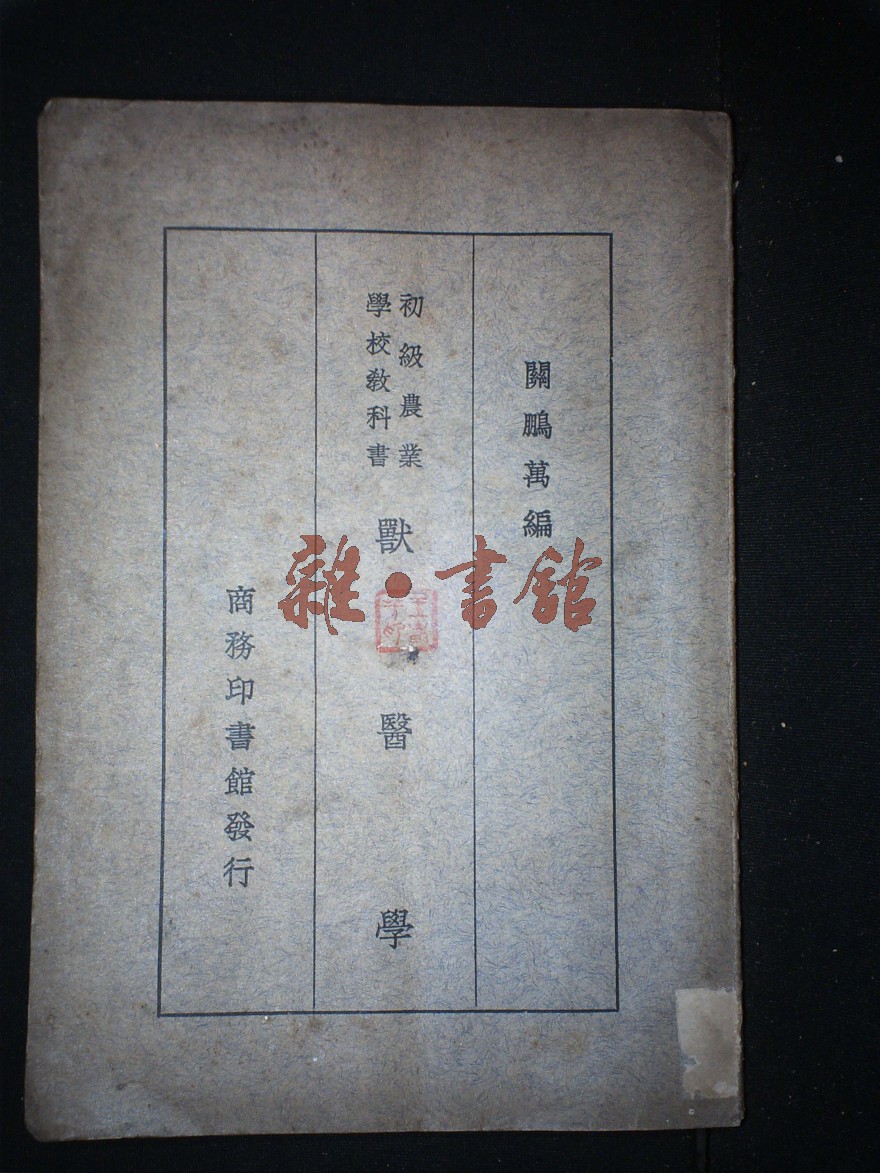 關鵬萬編
初級農業
學校教科書
獸醫學
商務印書館發行
雜·書館